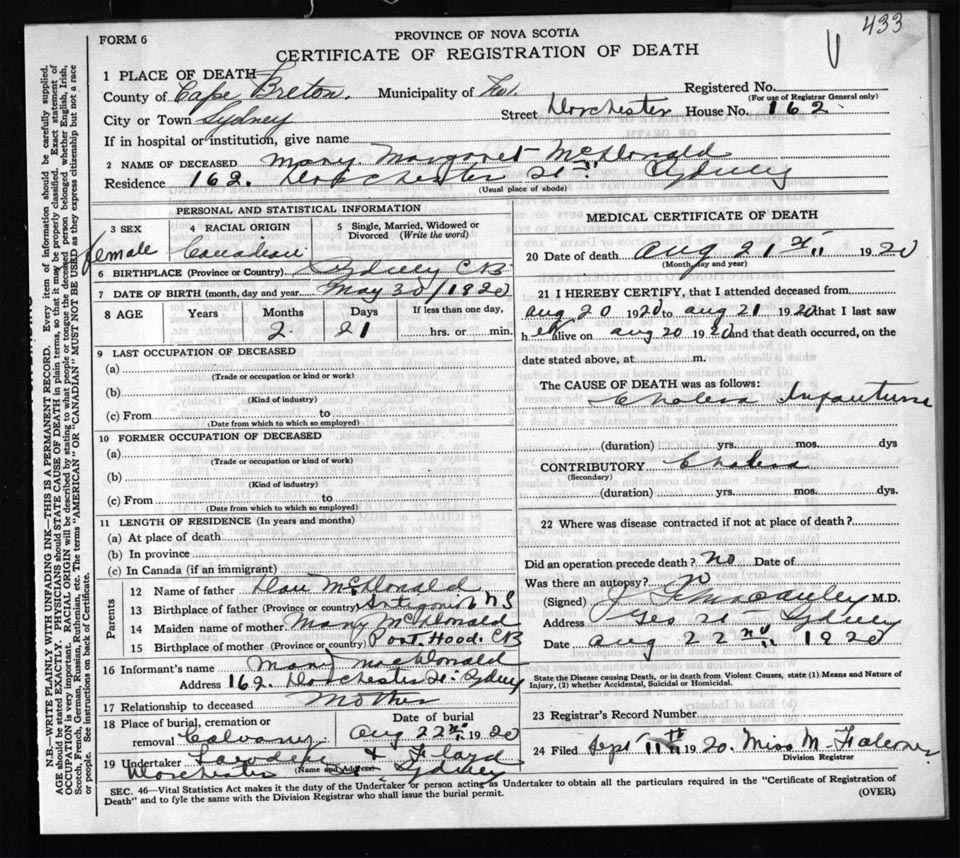 433
FORM 6
PROVINCE OF NOVA SCOTIA
CERTIFICATE OF REGISTRATION OF DEATH
1 PLACE OF DEATH
County of Cape Breton. Municipality of Registered No.
(For use of Registrar General only)
City or Town Sydney Street Dorchester House No. 162
If in hospital or institution, give name
2 NAME OF DECEASED Mary Margaret McDonald
Residence 162. Dorchester St. Sydney
(Usual place of abode)
PERSONAL AND STATISTICAL INFORMATION
3 SEX 4 RACIAL ORIGIN 5 Single, Married, Widowed or Divorced (Write the word)
female Canadian
6 BIRTHPLACE (Province or Country) Sydney CB
7 DATE OF BIRTH (month, day and year) May 30/1920
8 AGE Years Months Days If less than one day,
2 21 hrs. or min.
9 LAST OCCUPATION OF DECEASED
(a)
(Trade or occupation or kind or work)
(b)
(Kind of industry)
(c) From to
(Date from which to which so employed)
10 FORMER OCCUPATION OF DECEASED
(a)
(Trade or occupation or kind of work)
(b)
(Kind of industry)
(c) From to
(Date from which to which so employed)
11 LENGTH OF RESIDENCE (In years and months)
(a) At place of death
(b) In province
(c) In Canada (if an immigrant)
Parents
12 Name of father Dan McDonald
13 Birthplace of father (Province or country) Antigonish NS
14 Maiden name of mother Mary McDonald
15 Birthplace of mother (Province or country) Port Hood. CB
16 Informant's name Mary McDonald
Address 162. Dorchester St. Sydney
17 Relationship to deceased Mother
18 Place of burial, cremation or removal Calvary Date of burial Aug 22nd 1920
19 Undertaker & Floyd
(Name and Address)
Dorchester St Sydney
MEDICAL CERTIFICATE OF DEATH
20 Date of death Aug 21st 1920
(Month, day and year)
21 I HEREBY CERTIFY, that I attended deceased from
Aug 20 1920 to Aug 21 1920 that I last saw
h er alive on Aug 20 1920 and that death occurred, on the
date stated above, at m.
The CAUSE OF DEATH was as follows:
Cholera Infantum
(duration) yrs. mos. dys
CONTRIBUTORY Cholera
(Secondary)
(duration) yrs. mos. dys.
22 Where was disease contracted if not at place of death?
Did an operation precede death? No Date of
Was there an autopsy? No
(Signed) J McAuley M.D.
Address Geo St Sydney
Date Aug 22nd 1920
State the Disease causing Death, or in death from Violent Causes, state (1) Means and Nature of
Injury, (2) whether Accidental, Suicidal or Homicidal.
23 Registrar's Record Number
24 Filed Sept 11th 1920. Miss M. Falconer
Division Registrar
SEC. 46—Vital Statistics Act makes it the duty of the Undertaker or person acting as Undertaker to obtain all the particulars required in the "Certificate of Registration of
Death" and to fyle the same with the Division Registrar who shall issue the burial permit. (OVER)
N.B.—WRITE PLAINLY WITH UNFADING INK—THIS IS A PERMANENT RECORD. Every item of information should be carefully supplied.
AGE should be stated EXACTLY. PHYSICIANS should STATE CAUSE OF DEATH in plain terms, so that it may be properly classified. Exact statement of
OCCUPATION is very important. RACIAL ORIGIN will be described by stating to what people or tongue the deceased person belonged, whether English, Irish,
Scotch, French, German, Russian, Ruthenian, etc. The terms "AMERICAN" OR "CANADIAN" MUST NOT BE USED as they express citizenship but not a race
or people. See instructions on back of Certificate.